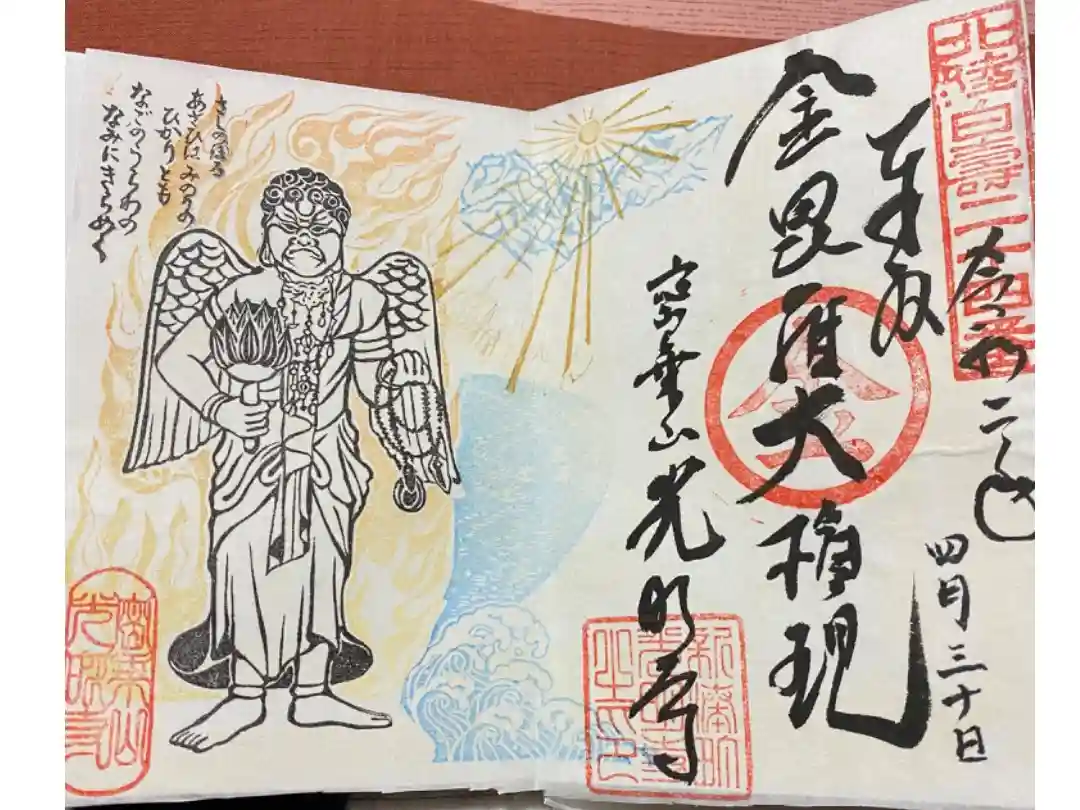 北陸白寿三十三観音
令和二年
四月三十日
奉拝
金毘羅大権現
密乗山光明寺
さしのぼる
あさひはみのりの
ひかりとも
なごのうらわの
なみにきらめく
密乗山
光明寺